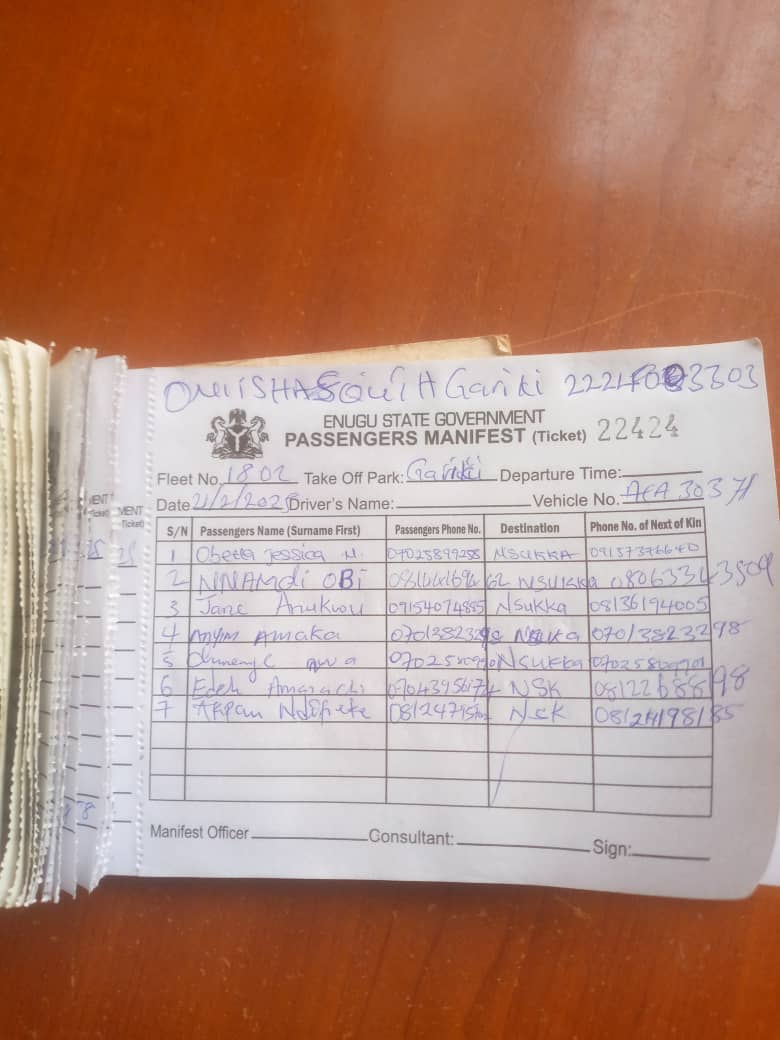 ONITSHA SOUTH Gariki 2224083303
ENUGU STATE GOVERNMENT
PASSENGERS MANIFEST (Ticket) 22424
Fleet No. 1802 Take Off Park: Gariki Departure Time:
Date 21/2/2025 Driver's Name: Vehicle No.
S/N Passengers Name (Surname First) Passengers Phone No. Destination Phone No. of Next of Kin
1 Obetta Jessica N. 07025899258 NSUKKA 09137376640
2 NNAMDI OBI NSUKKA 08063343509
3 Jane 09154074885 Nsukka 08136194005
4 Anyim Amaka Nsuka 07013823298
5 Nsukka
6 Edeh Amarachi NSK 08122688198
7 Akpan Ndifreke NSK 08124198185
Manifest Officer Consultant: Sign:
MENT
Ticket)
MENT
Ticket)